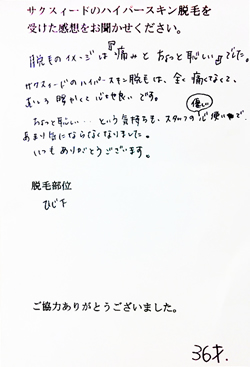 サクスィードのハイパースキン脱毛を
受けた感想をお聞かせください。
脱毛のイメージは『痛みとちょっと恥しい』でした。
サクスィードのハイパースキン脱毛は、全く痛くなくて、
むしろ暖かくて心地良いです。
ちょっと恥しい…という気持ちも、スタッフの優しい心使いで、
あまり気にならなくなりました。
いつもありがとうございます。
脱毛部位
ひじ下
ご協力ありがとうございました。
36才.